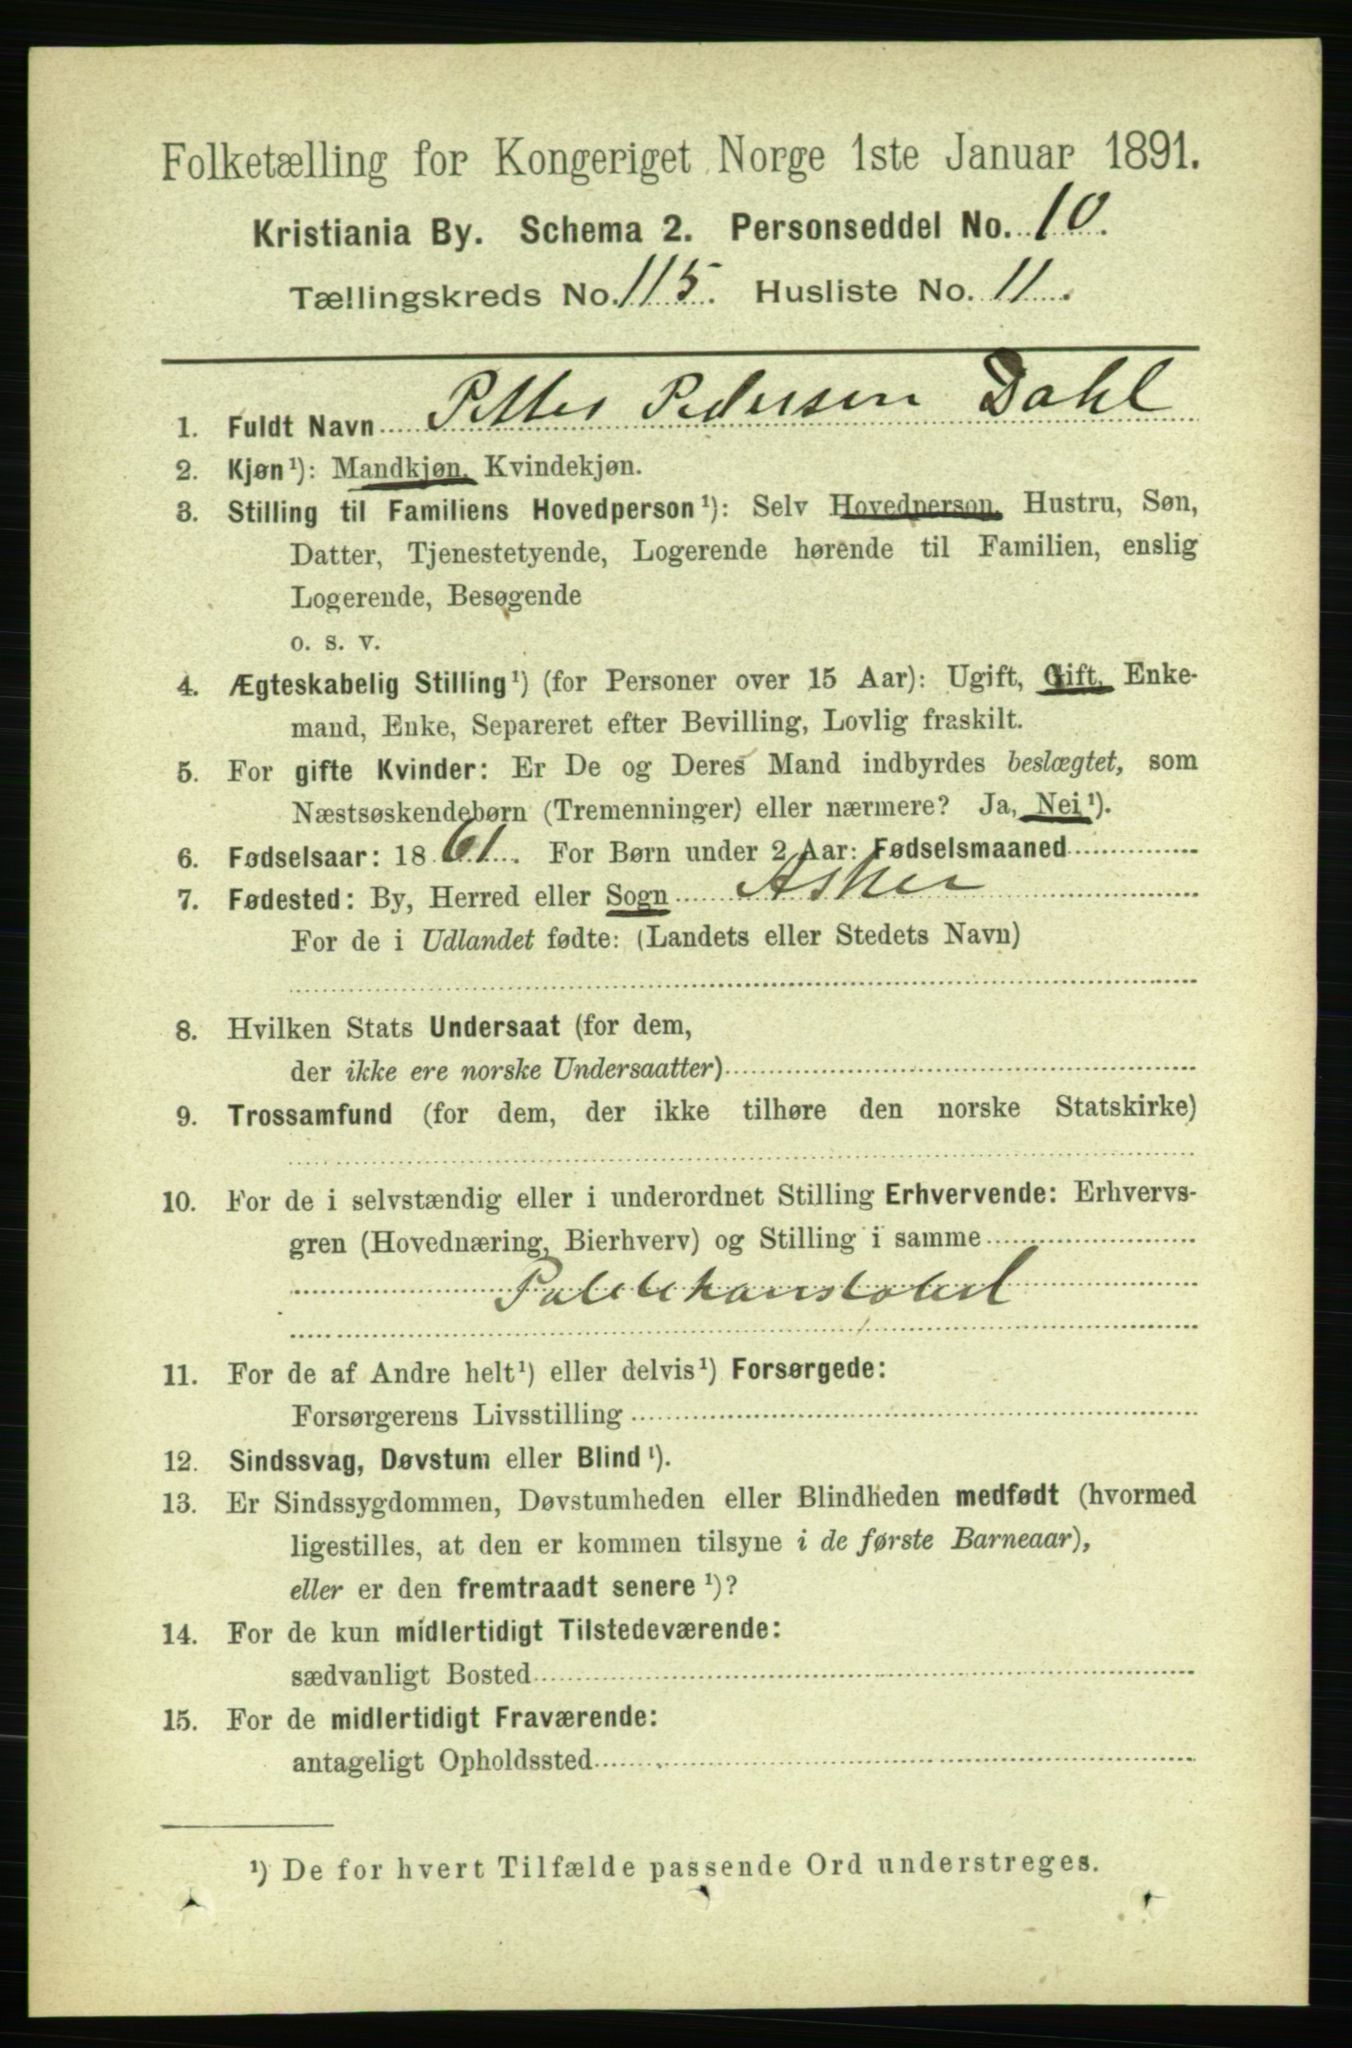 Folketælling for Kongeriget Norge 1ste Januar 1891.
Kristiania By. Schema 2. Personseddel No. 10.
Tællingskreds No. 115. Husliste No. 11.
1. Fuldt Navn Petter Pedersen Dahl
2. Kjøn¹): Mandkjøn, Kvindekjøn.
3. Stilling til Familiens Hovedperson¹): Selv Hovedperson, Hustru, Søn,
Datter, Tjenestetyende, Logerende hørende til Familien, enslig
Logerende, Besøgende
o. s. v.
4. Ægteskabelig Stilling¹) (for Personer over 15 Aar): Ugift, Gift, Enke-
mand, Enke, Separeret efter Bevilling, Lovlig fraskilt.
5. For gifte Kvinder: Er De og Deres Mand indbyrdes beslægtet, som
Næstsøskendebørn (Tremenninger) eller nærmere? Ja, Nei¹).
6. Fødselsaar: 1861. For Børn under 2 Aar: Fødselsmaaned
7. Fødested: By, Herred eller Sogn Asker
For de i Udlandet fødte: (Landets eller Stedets Navn)
8. Hvilken Stats Undersaat (for dem,
der ikke ere norske Undersaatter)
9. Trossamfund (for dem, der ikke tilhøre den norske Statskirke)
10. For de i selvstændig eller i underordnet Stilling Erhvervende: Erhvervs-
gren (Hovednæring, Bierhverv) og Stilling i samme
11. For de af Andre helt¹) eller delvis¹) Forsørgede:
Forsørgerens Livsstilling
12. Sindssvag, Døvstum eller Blind¹).
13. Er Sindssygdommen, Døvstumheden eller Blindheden medfødt (hvormed
ligestilles, at den er kommen tilsyne i de første Barneaar),
eller er den fremtraadt senere¹)?
14. For de kun midlertidigt Tilstedeværende:
sædvanligt Bosted
15. For de midlertidigt Fraværende:
antageligt Opholdssted
¹) De for hvert Tilfælde passende Ord understreges.